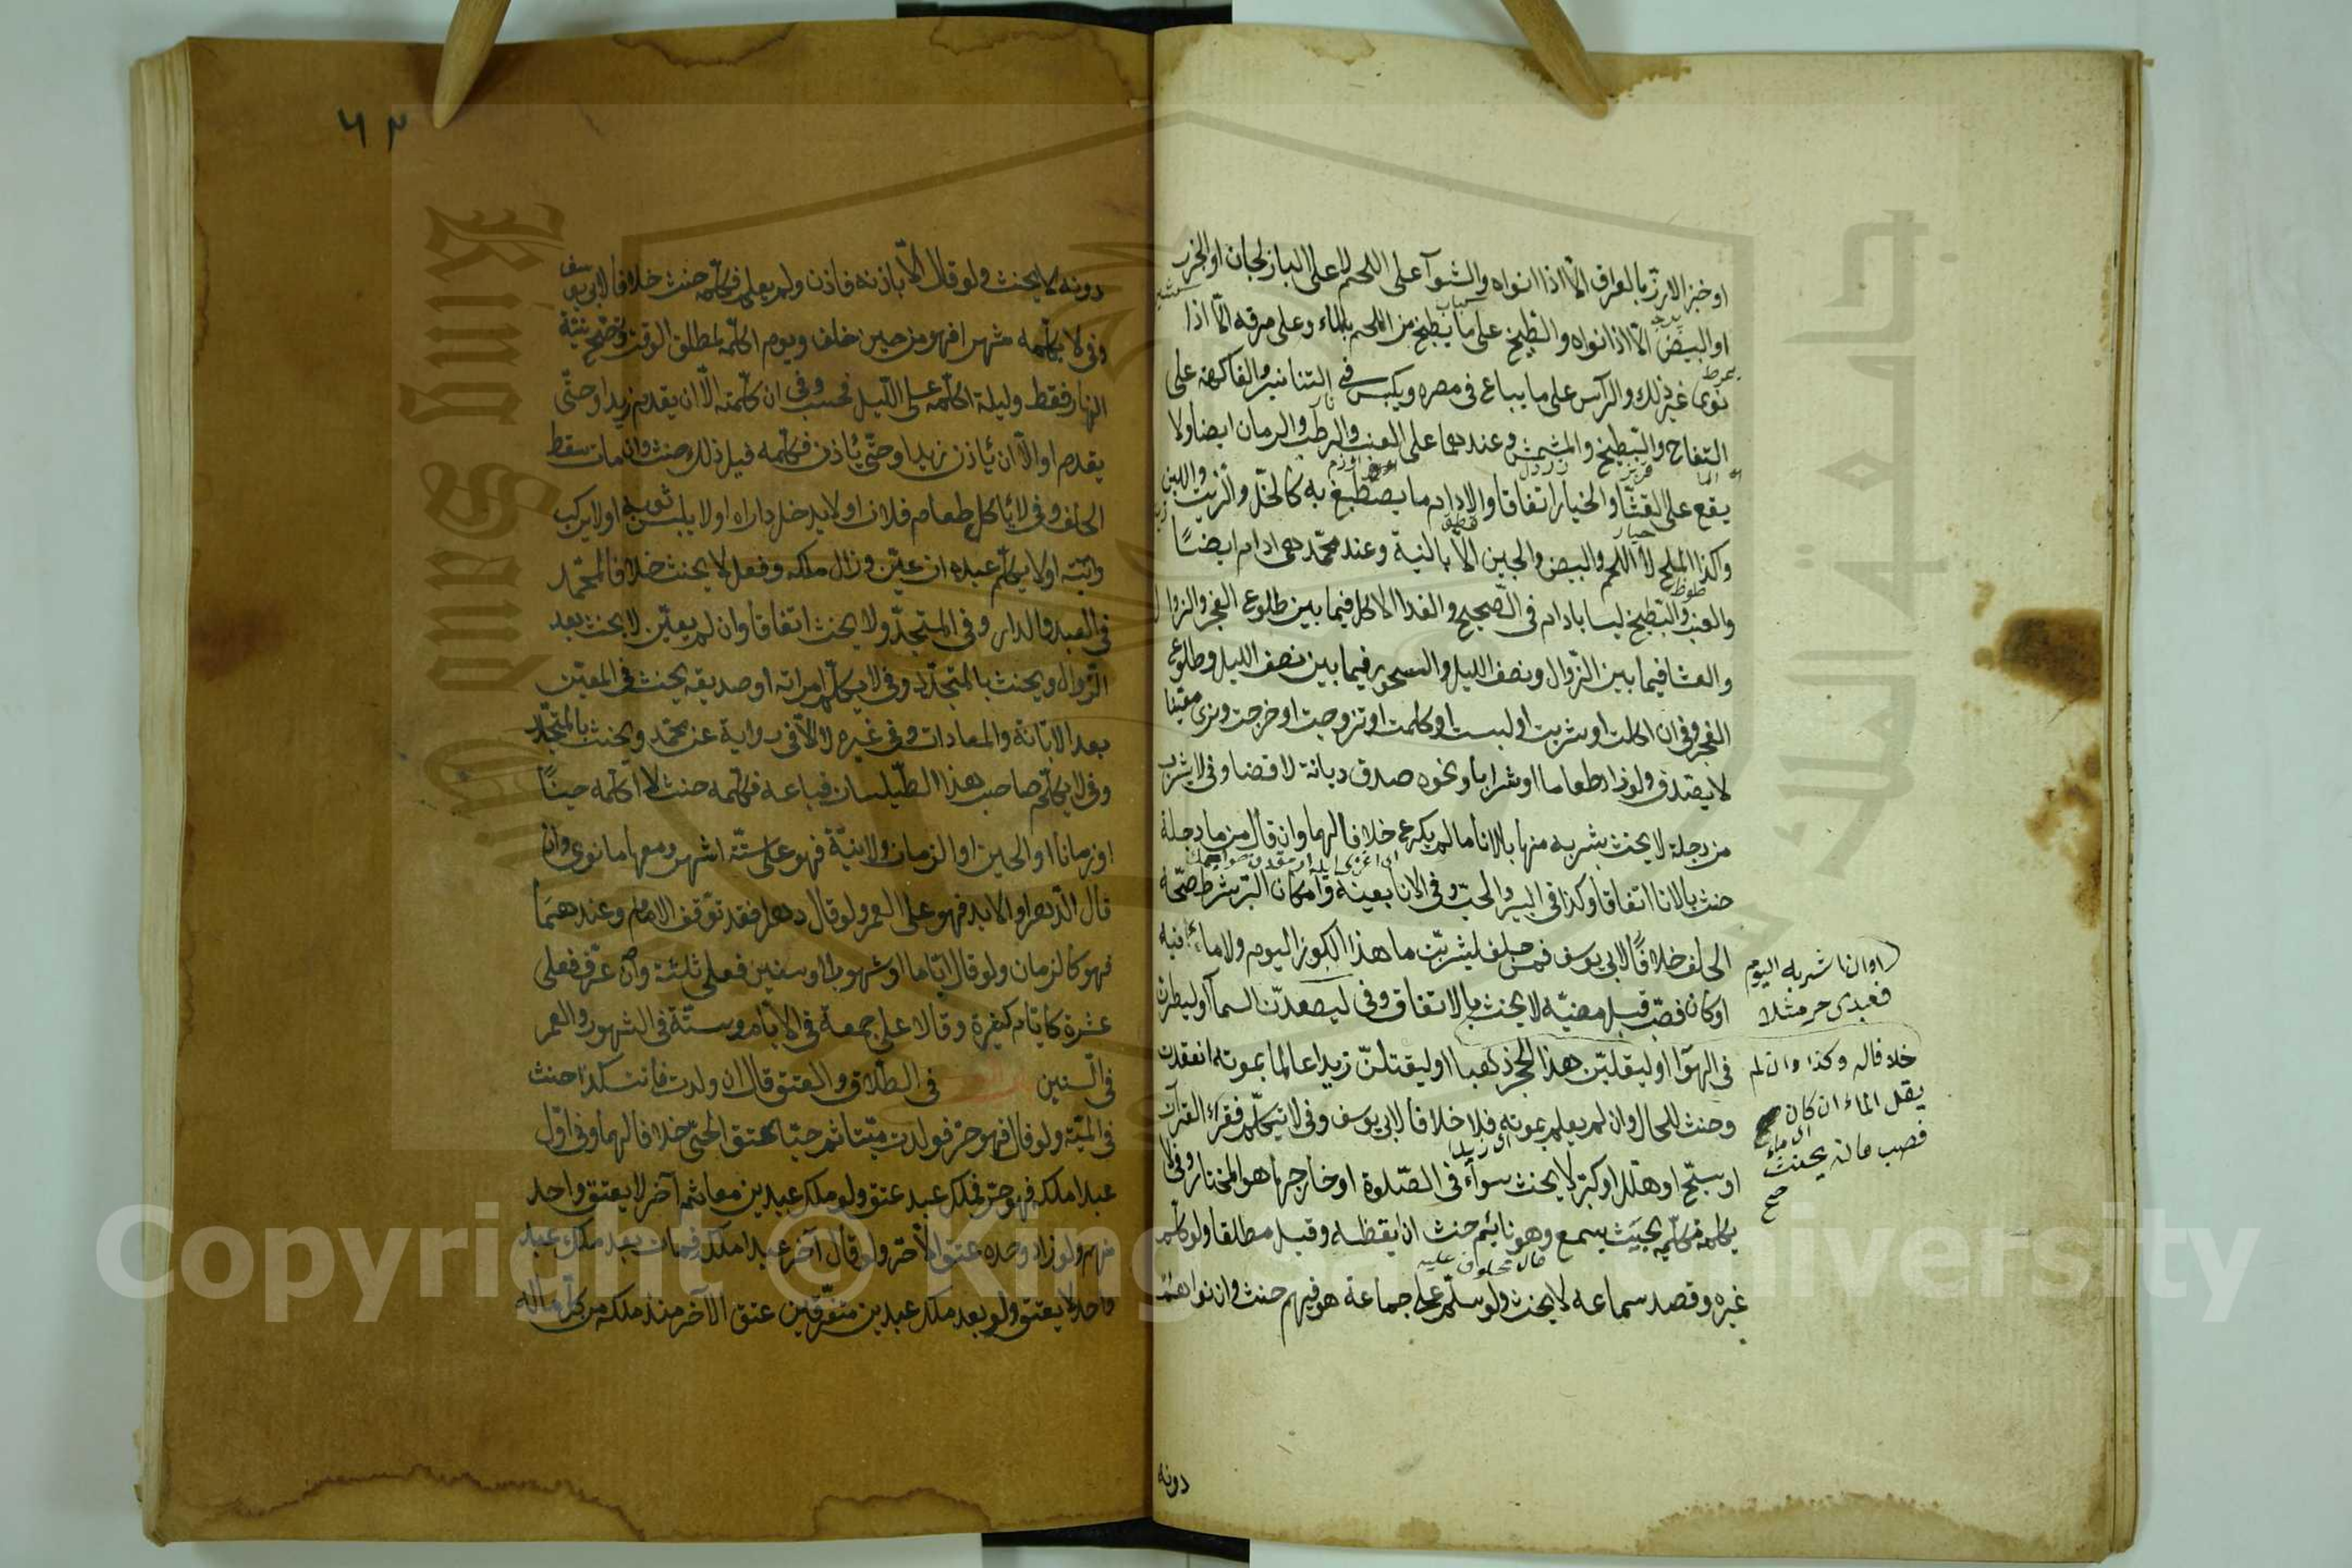 او خبز الارز بالعراق الا اذا نواه والشوآ على اللحم لا على الباذنجان او الجزر
او البيض الا اذا نواه والطبيخ على ما يطبخ من اللحم بالماء وعلى مرقه الا اذا
نوى غير ذلك والرأس على ما يباع فى مصره ويكبس فى التنانير والفاكهة على
التفاح والبطيخ والمشمش وعندهما على العنب والرطب والرمان ايضا ولا
يقع على القثا والخيار اتفاقا والادام ما يصطبغ به كالخل والزيت واللبن
وكذا الملح لا اللحم والبيض والجبن الا بالنية وعند محمد هى ادام ايضًا
والعنب والبطيخ ليسا بادام فى الصحيح والغدا الاكل فيما بين طلوع الفجر والزوال
والعشا فيما بين الزوال ونصف الليل والسحور فيما بين نصف الليل وطلوع
الفجر وفى ان اكلت او شربت او لبست او كلمت او تزوجت او خرجت ونوى معينا
لا يصدق ولو زاد طعاما او شرابا ونحوه صدق ديانة لا قضا وفى لا يشرب
من دجلة لا يحنث بشربه منها بالانا ما لم يكرع خلافا لهما وان قال من ما دجلة
حنث بالانا اتفاقا وكذا فى البير والحب وفى الانا بعينه وامكان البر شرط صحة
الحلف خلافًا لابى يوسف فمن حلف ليشربن ما هذا الكوز اليوم ولا ماء فيه
او كان فصب قبل مضيه لا يحنث بالاتفاق وفى ليصعدن السمآ او ليطيرن
فى الهوآ او ليقلبن هذا الحجر ذهبا او ليقتلن زيدا عالما بموته انعقدت
وحنث للحال وان لم يعلم بموته فلا خلافا لابى يوسف وفى لا يتكلم فقرأ القرآن
او سبح او هلل او كبر لا يحنث سوآء فى الصلوة او خارجها هو المختار وفى لا
يكلمه فكلمه بحيث يسمع وهو نايم حنث ان ايقظه وقيل مطلقا ولو كلم
غيره وقصد سماعه لا يحنث ولو سلم على جماعة هو فيهم حنث وان نواهم
او ان شربه اليوم
فعبدى حر مثلا
خلافا له وكذا وان لم
يقل الماء ان كان
فصب فانه يحنث
صح
دونه
٦٣
دونه لا يحنث ولو قال الا باذنه فاذن ولم يعلم فكلمه حنث خلافا لابى يوسف
وفى لا يكلمه شهرا فهو من حين حلف ويوم اكلمه لمطلق الوقت وتصح نية
النهار فقط وليلة اكلمه على الليل فحسب وفى ان كلمته الا ان يقدم زيد او حتى
يقدم او الا ان يأذن زيد او حتى يأذن فكلمه قبل ذلك حنث وان مات سقط
الحلف وفى لا يأكل طعام فلان او لا يدخل داره او لا يلبس ثوبه او لا يركب
دابته او لا يكلم عبده ان عين وزال ملكه وفعل لا يحنث خلافا لمحمد
فى العبد والدار وفى المتجدد لا يحنث اتفاقا وان لم يعين لا يحنث بعد
الزوال ويحنث بالمتجدد وفى لا يكلم امراته او صديقه يحنث فى المعين
بعد الابانة والمعادات وفى غيره لا الا فى رواية عن محمد ويحنث بالمتجدد
وفى لا يكلم صاحب هذا الطيلسان فباعه فكلمه حنث لا اكلمه حينًا
او زمانا او الحين او الزمان ولا نية فهو على ستة اشهر ومعها ما نوى وان
قال الدهر او الابد فهو على العمر ولو قال دهرا فقد توقف الامام وعندهما
فهو كالزمان ولو قال اياما او شهورا او سنين فعلى ثلثة وان عرف فعلى
عشرة كايام كثيرة وقالا على جمعة فى الايام وستة فى الشهور والعمر
فى السنين فى الطلاق والعتق قال ان ولدت فانت كذا حنث
فى الميت ولو قال فهو حر فولدت ميتا ثم حيا عتق الحى خلافا لهما وفى اول
عبد املكه فهو حر فملك عبد عتق ولو ملك عبدين معا ثم آخر لا يعتق واحد
منهم ولو زاد وحده عتق الآخر ولو قال آخر عبد املكه فمات بعد ملك عبد
واحد لا يعتق ولو بعد ملك عبدين متفرقين عتق الآخر منذ ملكه من كل ماله
Copyright © King Saud University
King Saud University
جامعة الملك سعود